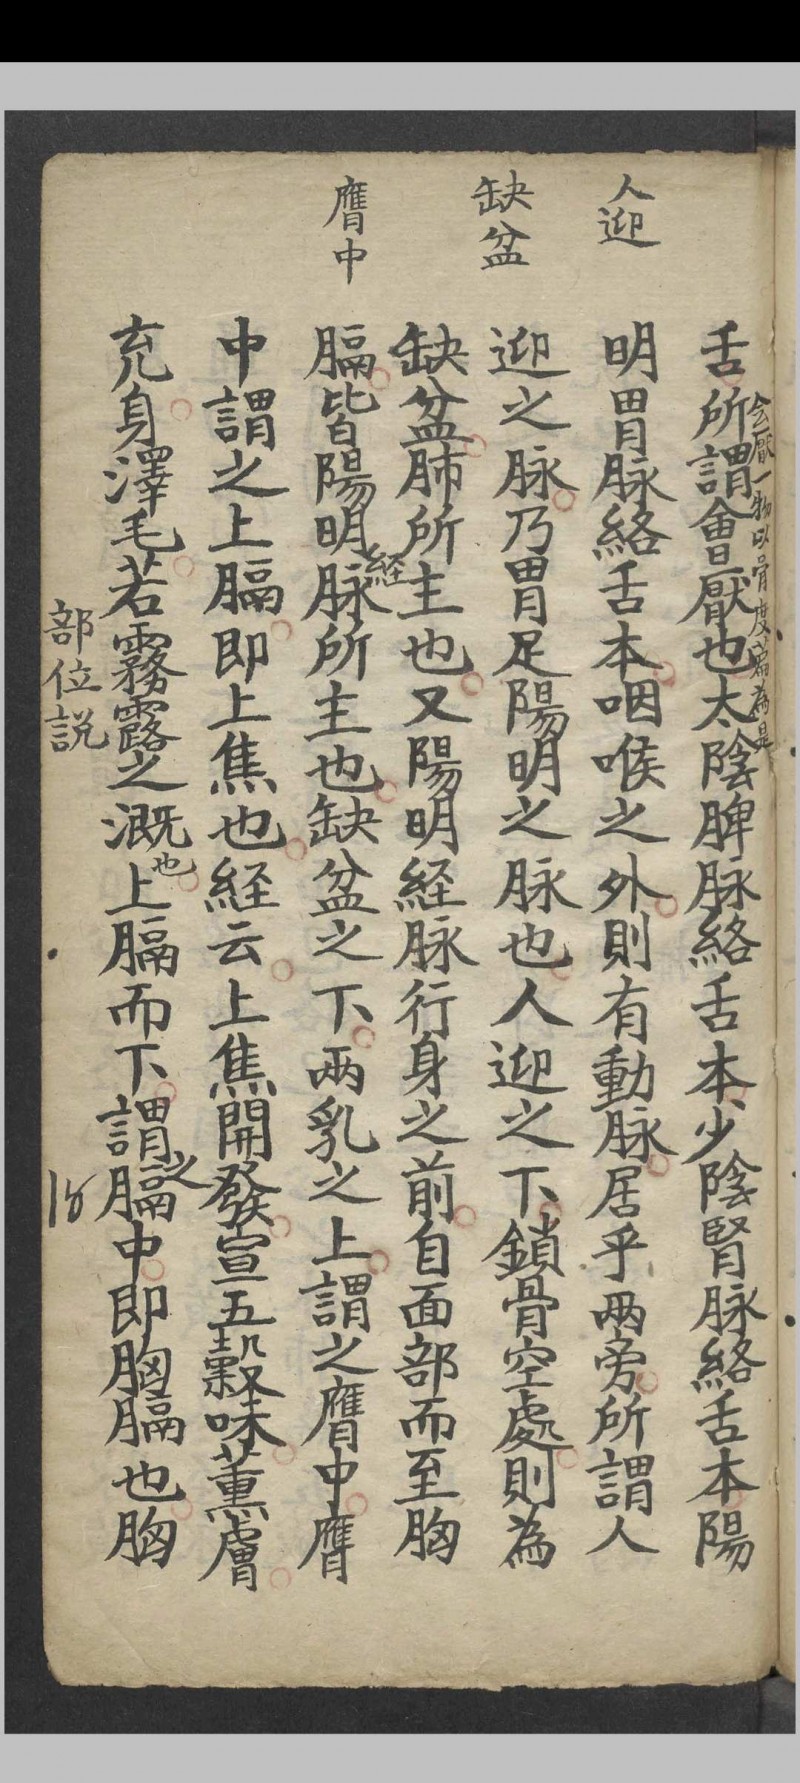 人迎
缺盆
膺中
会厭一物以骨度篇為是
舌所謂會厭也太陰脾脉絡舌本少陰腎脉絡舌本陽
明胃脉絡舌本咽喉之外則有動脉居乎兩旁所謂人
迎之脉乃胃足陽明之脉也人迎之下鎖骨空處則為
缺盆肺所主也又陽明経脉行身之前自面部而至胸
膈皆陽明経脉所主也缺盆之下兩乳之上謂之膺中膺
中謂之上膈即上焦也経云上焦開發宣五穀味薫膚
充身澤毛若霧露之漑也上膈而下謂之膈中即胸膈也胸
部位説
18